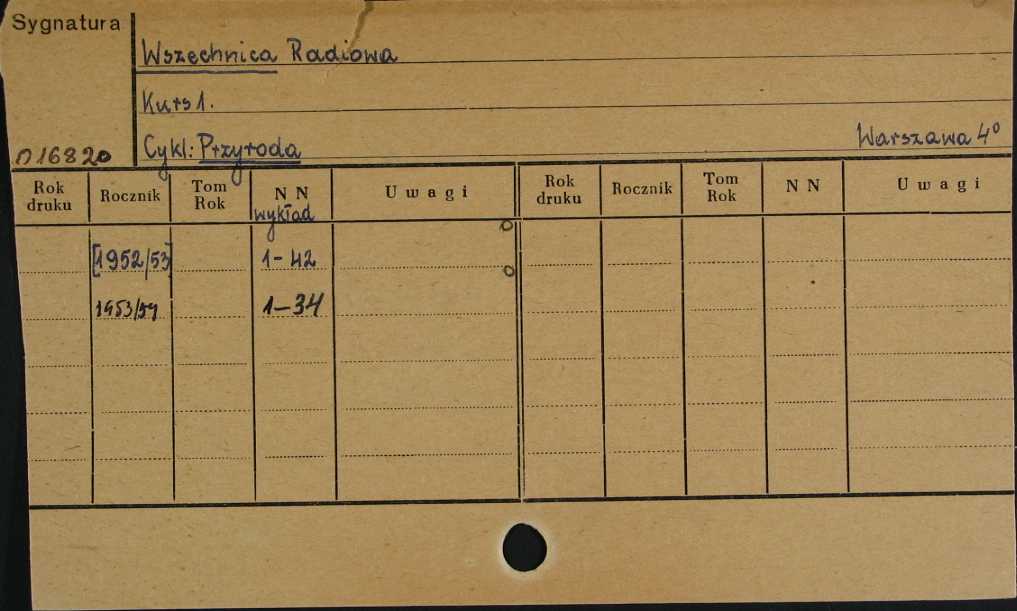 Sygnatura
Wszechnica Radiowa
Kurs 1.
Cykl: Przyroda Warszawa 4°
016820
Rok druku Rocznik Tom Rok NN Uwagi Rok druku Rocznik Tom Rok NN Uwagi
wykład
[1952/53] 1-42
1953/54 1-34